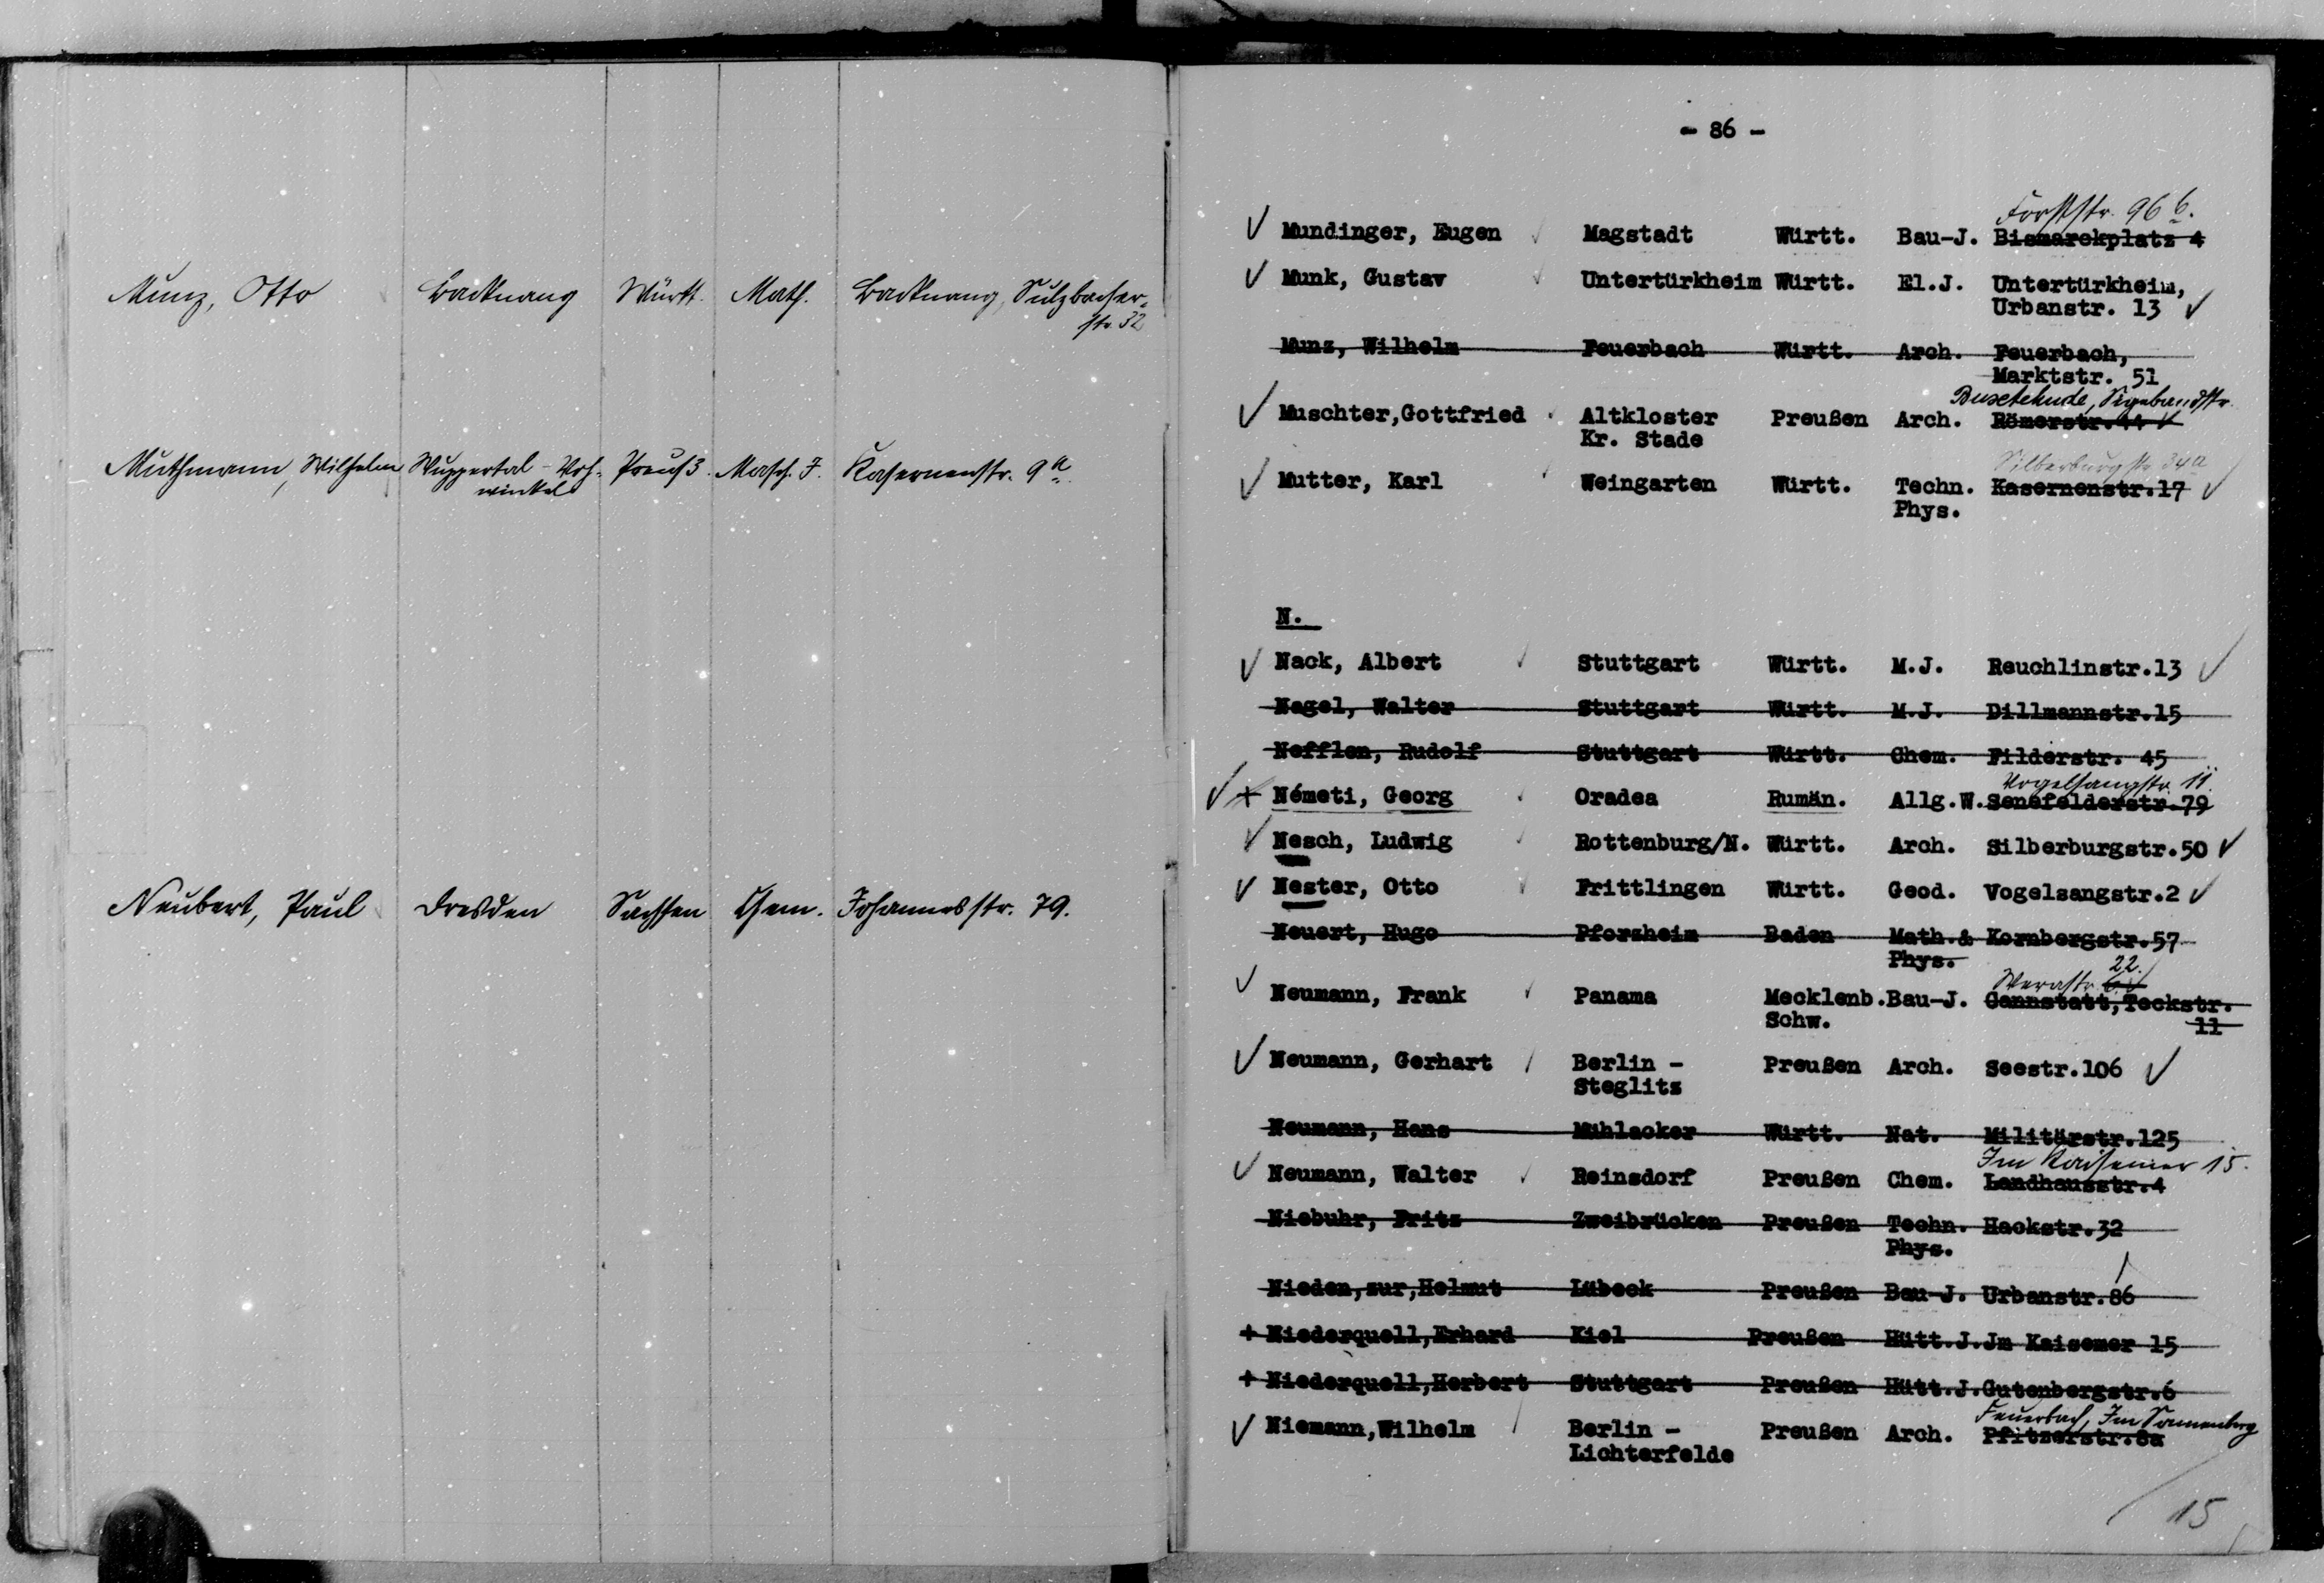 Munz, Otto Backnang Württ. Math. Backnang, Sulzbacher-
str. 32
Muthmann, Wilhelm Wuppertal - Voh- Preuß. Masch. J. Kasernenstr. 9a
winkel
Neubert, Paul Dresden Sachsen Chem. Johannesstr. 79.
- 86 -
Forststr. 96 b.
Mundinger, Eugen Magstadt Württ. Bau-J. Bismarckplatz 4
Munk, Gustav Untertürkheim Württ. El.J. Untertürkheim,
Urbanstr. 13
Munz, Wilhelm Feuerbach Württ. Arch. Feuerbach,
Marktstr. 51
Buxtehude, Sigebandstr.
Muschter,Gottfried Altkloster Preußen Arch. Römerstr.44
Kr. Stade
Silberburgstr. 34a
Mutter, Karl Weingarten Württ. Techn. Kasernenstr.17
Phys.
N.
Nack, Albert Stuttgart Württ. M.J. Reuchlinstr.13
Nagel, Walter Stuttgart Württ. M.J. Dillmannstr.15
Nefflen, Rudolf Stuttgart Württ. Chem. Filderstr. 45
Vogelsangstr. 11
+ Németi, Georg Oradea Rumän. Allg.W. Senefelderstr.79
Nesch, Ludwig Rottenburg/N. Württ. Arch. Silberburgstr.50
Nester, Otto Frittlingen Württ. Geod. Vogelsangstr.2
Neuert, Hugo Pforzheim Baden Math.& Kornbergstr.57
Phys.
22.
Werastr. 6
Neumann, Frank Panama Mecklenb. Bau-J. Cannstatt,Teckstr.
Schw. 11
Neumann, Gerhart Berlin - Preußen Arch. Seestr.106
Steglitz
Neumann, Hans Mühlacker Württ. Nat. Militärstr.125
Im Kaisemer 15.
Neumann, Walter Reinsdorf Preußen Chem. Landhausstr.4
Niebuhr, Fritz Zweibrücken Preußen Techn. Hackstr.32
Phys.
Nieden,zur,Helmut Lübeck Preußen Bau-J. Urbanstr.86
+ Niederquell,Erhard Kiel Preußen Hütt.J. Jm Kaisemer 15
+ Niederquell,Herbert Stuttgart Preußen Hütt.J. Gutenbergstr.6
Feuerbach, Im Sonnenberg
Niemann,Wilhelm Berlin - Preußen Arch. Pfitzerstr.8a
Lichterfelde
15